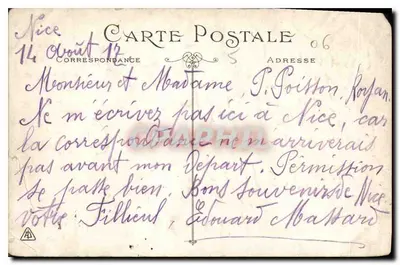 Nice
14 Août 17
CARTE POSTALE
CORRESPONDANCE
ADRESSE
06
5
Monsieur et Madame, P. Poisson, Royan.
Ne m'écrivez pas ici à Nice, car
la correspondance ne m'arriverais
pas avant mon Départ. Permission
se passe bien. Bons souvenirs de Nice.
Votre Fillieul, Edouard Massard